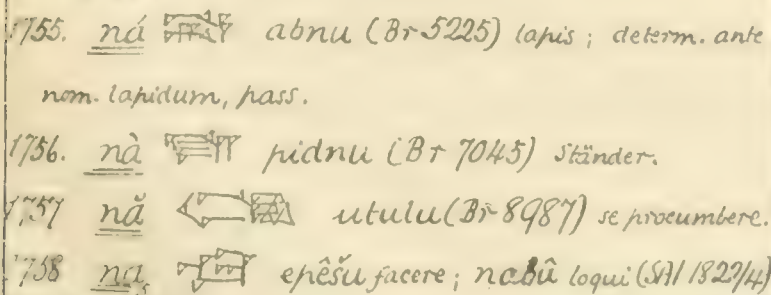 1755. ná 𒉌𒌓 abnu (Br 5225) lapis; determ. ante
nom. lapidum, pass.
1756. nà pidnu (Br 7045) Ständer.
1757 nă utulu (Br 8987) se procumbere.
1758 na₅ epêšu facere; nabû loqui (SAI 1822/4)